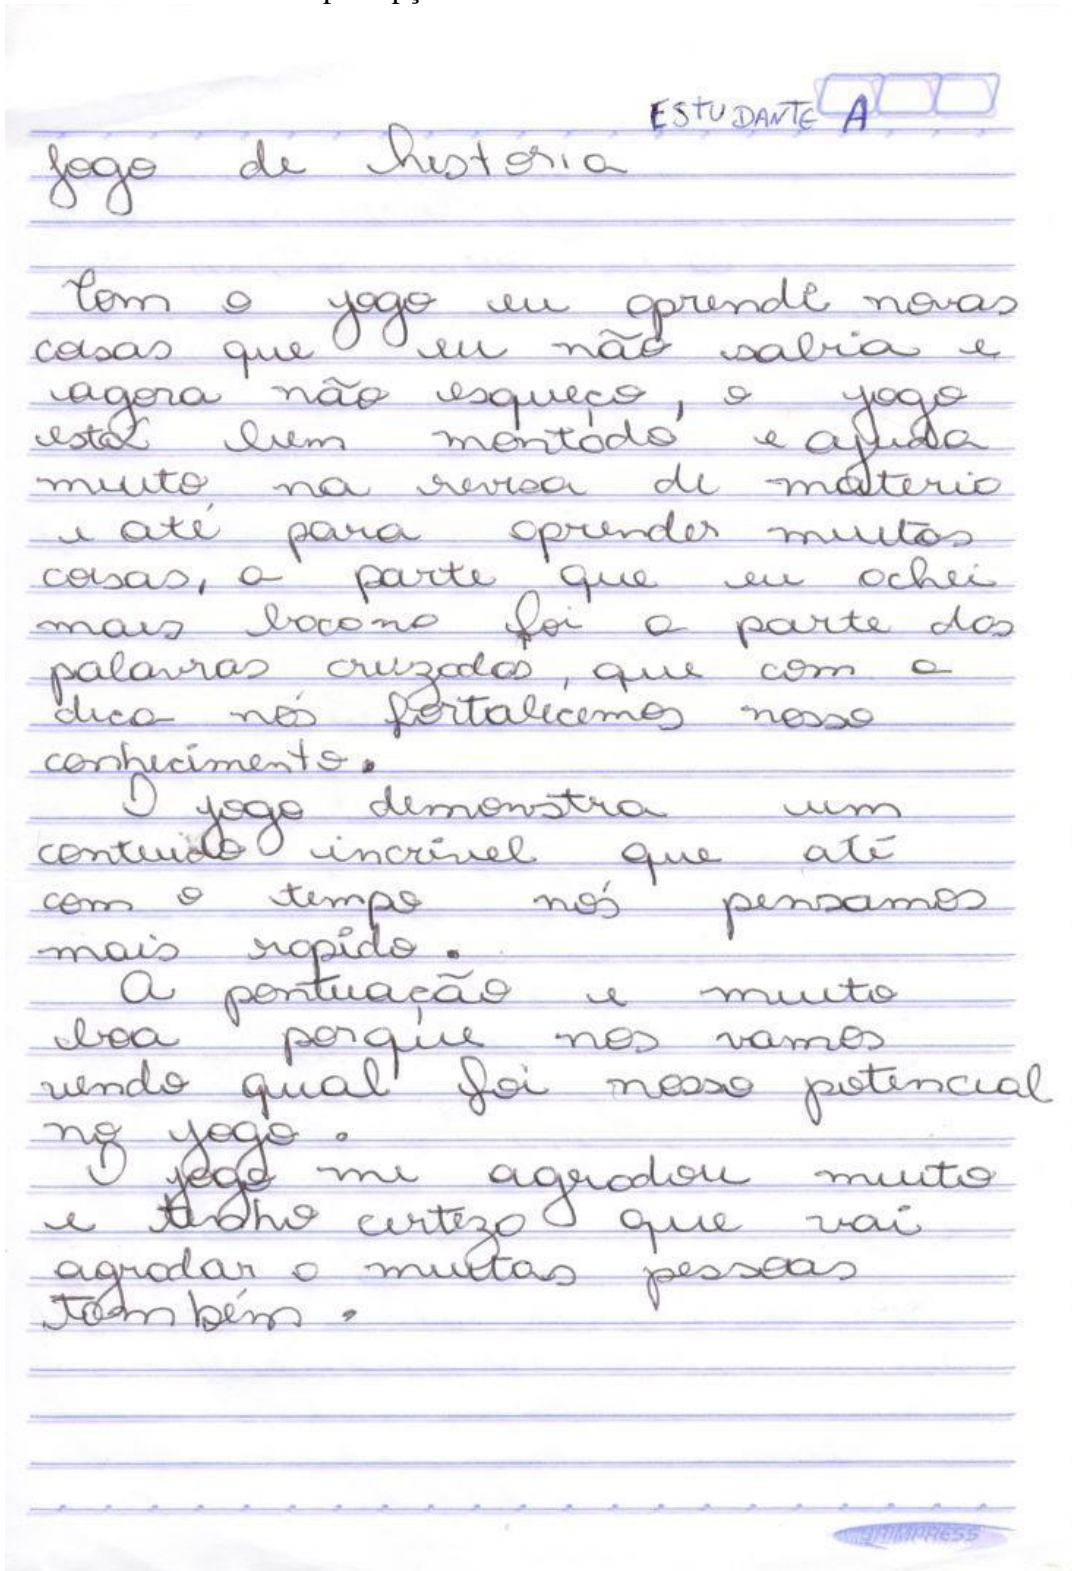 ESTUDANTE A
Jogo de historia
Com o jogo eu aprendi novas
coisas que eu não sabia e
agora não esqueço, o jogo
está bem montado e ajuda
muito na revisa de materia
e até para aprender muitas
coisas, a parte que eu achei
mais bacana foi a parte das
palavras cruzadas, que com a
dica nós fortalecemos nosso
conhecimento.
O jogo demonstra um
conteudo incrível que até
com o tempo nós pensamos
mais rapido.
A pontuação e muito
boa porque nos vamos
vendo qual foi nosso potencial
no jogo.
O jogo me agradou muito
e tenho certeza que vai
agradar a muitas pessoas
também.